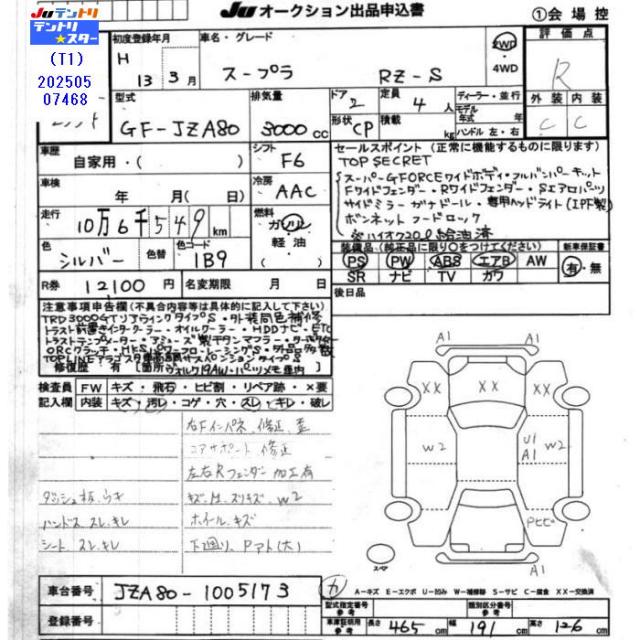 JUテントリ
テントリ★スター
(T1)
202505
07468
JU オークション出品申込書
①会場控
初度登録年月
H 13 3月
車名・グレード
スープラ RZ-S
2WD
・4WD
評価点
R
外装 内装
C C
型式
GF-JZA80
排気量
3000cc
ドア 2
形状 CP
定員 4人
積載 kg
ディーラー・並行
モデル年式 年
ハンドル 左・右
車歴
自家用・( )
シフト F6
車検
年 月( )
冷房 AAC
走行
10万6千549km
燃料
ガソリン
軽油
色
シルバー
色替
色コード
1B9
R券 12100円
名変期限 月 日
セールスポイント (正常に機能するものに限ります)
TOP SECRET
スーパーGFORCEワイドボディ・フルバンパーキット
Fワイドフェンダー・Rワイドフェンダー・Sエアロパーツ
サイドミラー ガナドール・専用ヘッドライト(IPF製)
ボンネット フードロック
※ハイオク20L給油済
装備品 (純正品に限り○をつけてください)
PS PW ABS エアB AW
SR ナビ TV カワ
新車保証書
有・無
後日品
注意事項申告欄(不具合内容等は具体的に記入して下さい)
TRD3000GTリアウイングタイプS・外装同色補修
トラスト前置きインタークーラー・オイルクーラー・HDDナビ・ETC
修復歴 有 【箇所
検査員 FW キズ・飛石・ヒビ割・リペア跡・×要
記入欄 内装 キズ・汚レ・コゲ・穴・スレ・キレ・破レ
右Fインパネ 修正 歪
コアサポート 修正
左右Rフェンダー 加工有
ダッシュ板 ウキ
キズ、H、スリキズ、W2
ハンドル スレ、キレ
ホイール キズ
シート スレ、キレ
下廻り、Pアト(大)
A1
A1
XX
XX
XX
W2
U1
A1
W2
Pヒビ
A1
スペア
A1
車台番号 JZA80-1005173
登録番号
A=キズ E=エクボ U=凹み W=補修跡 S=サビ C=腐食 XX=交換済
型式指定番号
類別区分番号
車庫証明用参考 長さ 465cm 幅 191cm 高さ 126cm